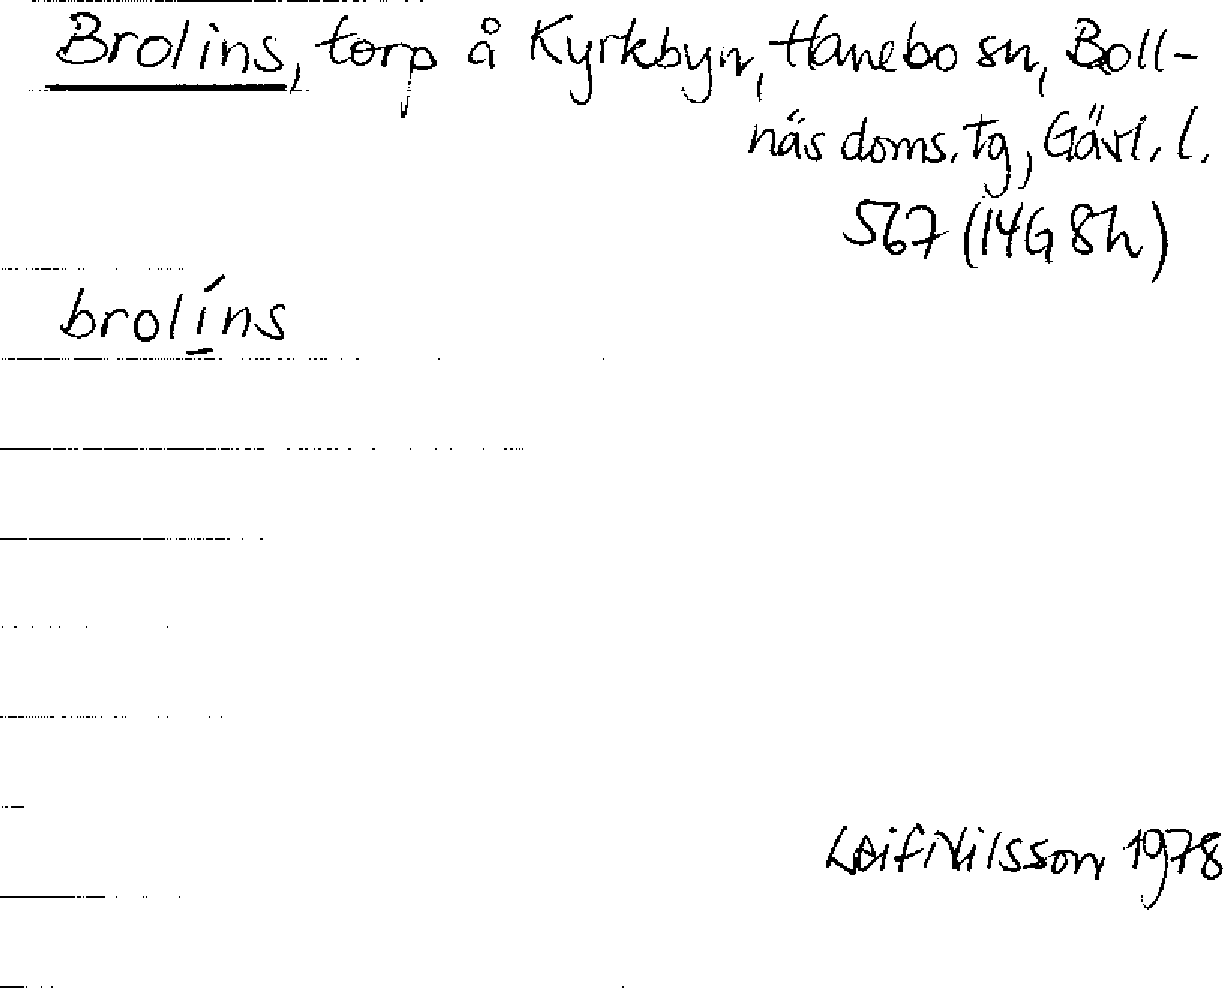 Brolins, torp å Kyrkbyn, Hanebo sn, Boll-
näs doms. tg, Gävl. l.
567 (14G 8h)
brolíns
Leif Nilsson 1978